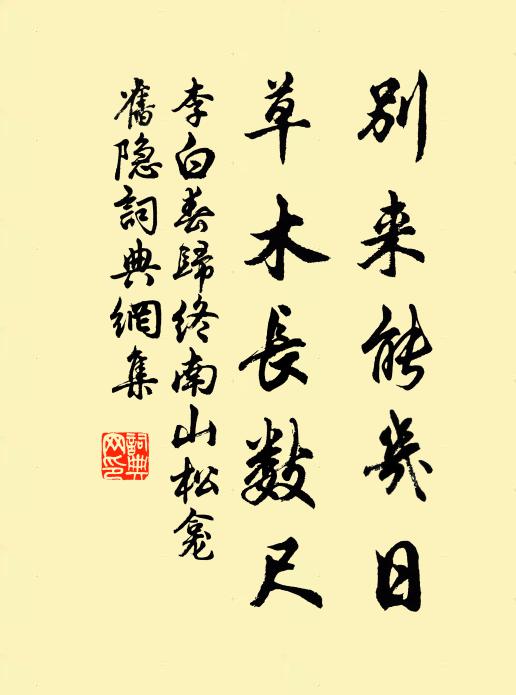 别来能几日
草木长数尺
李白春歸终南山松龛
舊隐詞典網集
詞典网印